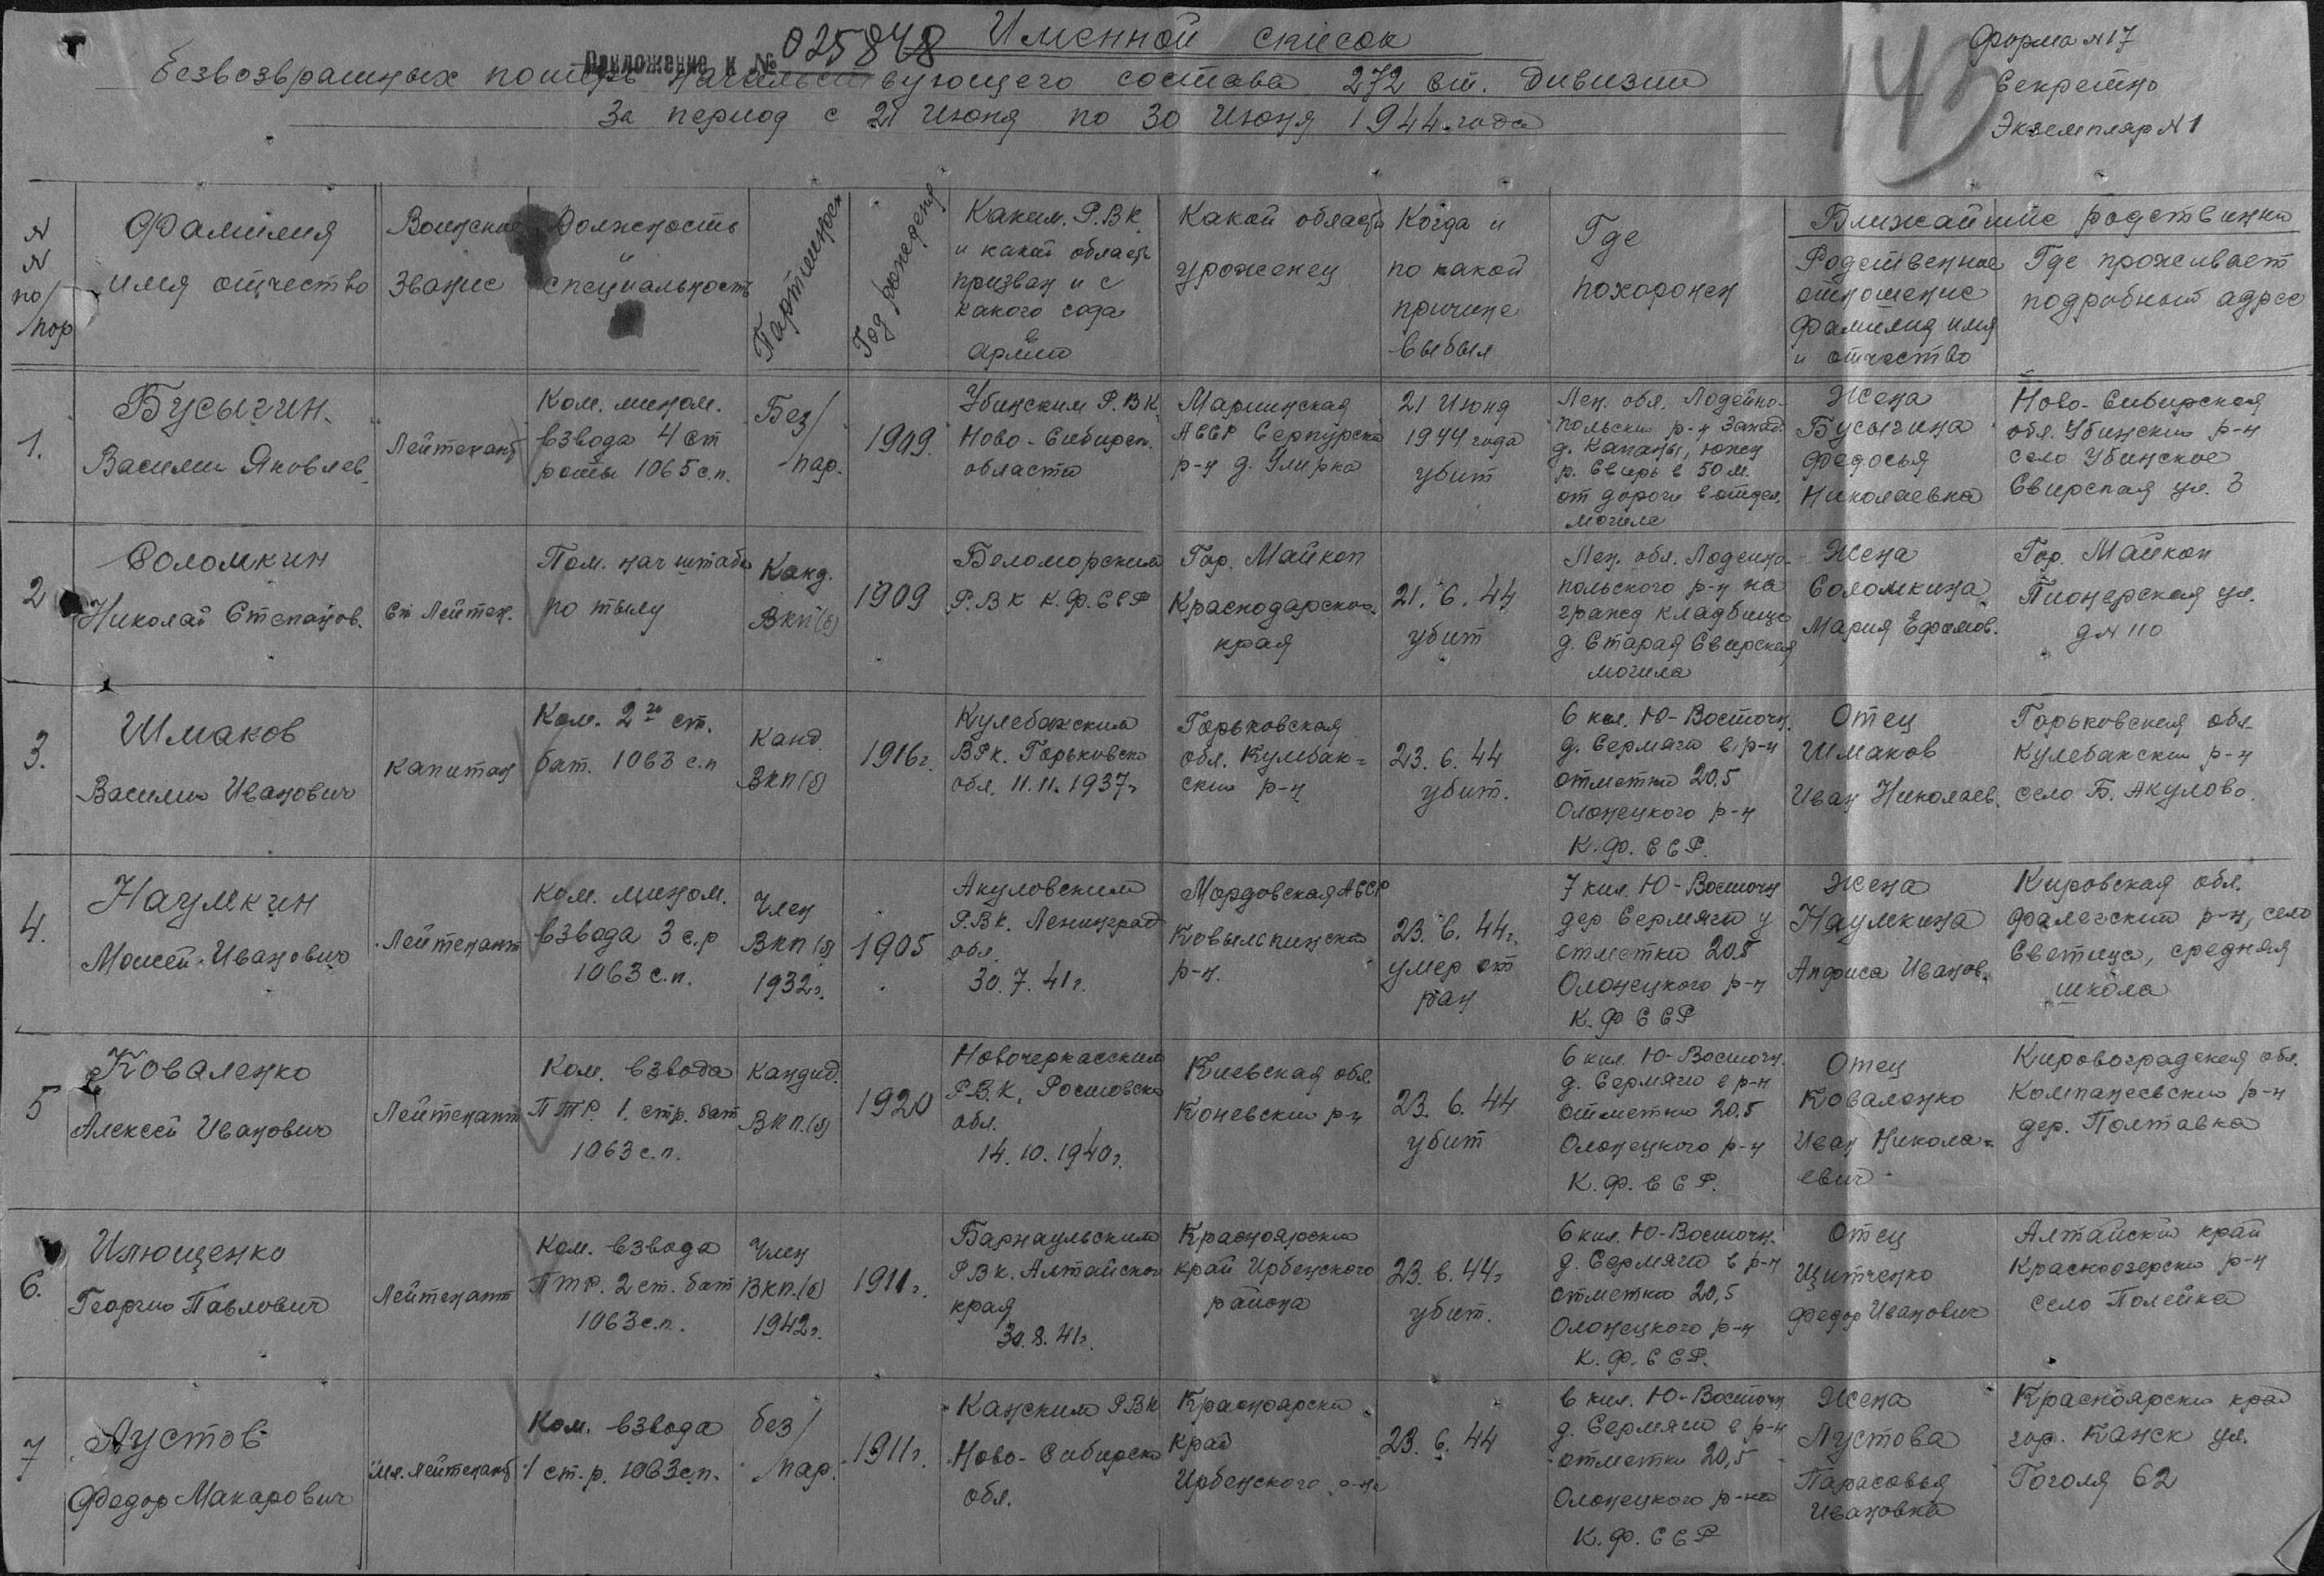 Приложение к № 025848
Именной список
безвозвратных потерь начальствующего состава 272 ст. дивизии
За период с 21 июня по 30 июня 1944 года
Форма N 17
Секретно
Экземпляр N 1
N N по/пор
Фамилия имя отчество
Воинское звание
Должность и специальность
Партийност
Год рождения
Каким Р.В.К. и какой области призван и с какого года в армии
Какой области уроженец
Когда и по какой причине выбыл
Где похоронен
Ближайшие родственники
Родственное отношение фамилия имя и отчество
Где проживает подробный адрес
1.
Бусыгин
Василий Яковлев.
Лейтенант
Ком. мином.
взвода 4 ст
роты 1065 с.п.
Без/пар.
1909.
Убинским Р.В.К.
Ново-Сибирск.
области
Мариинская
АССР Сернурский
р-н д.
21 Июня
1944 года
убит
Лен. обл. Лодейно-
польский р-н Запад.
д. Кананы, южн
р. Свирь в 50 м.
от дороги в отдел.
могиле
Жена
Бусыгина
Федосья
Николаевна
Ново-Сибирская
обл. Убинский р-н
село Убинское
Свирская ул. 3
2
Соломкин
Николай Степанов.
Ст Лейтен.
Пом. нач штаба
по тылу
Канд.
ВКП(б)
1909
Беломорским
Р.В.К К.Ф.ССР
Гор. Майкоп
Краснодарского
края
21. 6. 44
убит
Лен. обл. Лодейно-
польского р-н на
гражд кладбище
д. Старая Свирская
могила
Жена
Соломкина
Мария Ефимов.
Гор. Майкоп
Пионерская ул.
д N 110
3.
Шмаков
Василий Иванович
Капитан
Ком. 2го ст.
бат. 1063 с.п
Канд.
ВКП(б)
1916г.
Кулебакским
ВРК. Горьковско
обл. 11.11.1937г
Горьковская
обл. Кулебак=
ский р-н
23. 6. 44
убит.
6 кил. Ю-Восточн.
д. Сермяги в р-н
отметки 20,5
Олонецкого р-н
К.Ф.ССР.
Отец
Шмаков
Иван Николаев.
Горьковская обл
Кулебакский р-н
село Б. Акулово.
4.
Наумкин
Моисей Иванович
Лейтенант
Ком. мином.
взвода 3 с.р
1063 с.п.
Член
ВКП(б)
1932г.
1905
Акуловским
Р.В.К. Ленинград
обл.
30. 7. 41г.
Мордовская АССР
Ковылкинский
р-н.
23. 6. 44г.
умер от
ран
7 кил. Ю-Восточн
дер Сермяги у
отметки 20,5
Олонецкого р-н
К.Ф ССР
Жена
Наумкина
Анфиса Иванов.
Кировская обл.
Фаленский р-н, село
Светица, средняя
школа
5
Коваленко
Алексей Иванович
Лейтенант
Ком. взвода
ПТР. 1. стр. бат
1063 с.п.
Кандид.
ВКП.(б)
1920
Новочеркасским
Р.В.К. Ростовско
обл.
14. 10. 1940г.
Киевская обл.
Коневский р-н
23. 6. 44
убит
6 кил. Ю-Восточн.
д. Сермяги в р-н
отметки 20,5
Олонецкого р-н
К.Ф.ССР.
Отец
Коваленко
Иван Никола=
евич
Кировоградская обл.
Компанеевский р-н
дер. Полтавка
6.
Илющенко
Георгий Павлович
Лейтенант
Ком. взвода
ПТР. 2 ст. бат
1063 с.п.
Член
ВКП.(б)
1942г.
1911г.
Барнаульским
РВК. Алтайского
края
30. 8. 41г.
Красноярский
край Ирбенского
района
23. 6. 44г
убит.
6 кил. Ю-Восточн.
д. Сермяги в р-н
отметки 20,5
Олонецкого р-н
К.Ф.ССР.
Отец
Федор Иванович
Алтайский край
Краснозерский р-н
село Полейка
7
Лустов
Федор Макарович
Мл. лейтенант
Ком. взвода
1 ст.р. 1063 с.п.
без/пар.
1911г.
Канским РВК
Ново-Сибирско
обл.
Красноярский
край
Ирбенского р-на
23. 6. 44
6 кил. Ю-Восточн
д. Сермяги в р-н
отметки 20,5
Олонецкого р-на
К.Ф.ССР
Жена
Лустова
Парасовья
Ивановна
Красноярский край
гор. Канск ул.
Гоголя 62